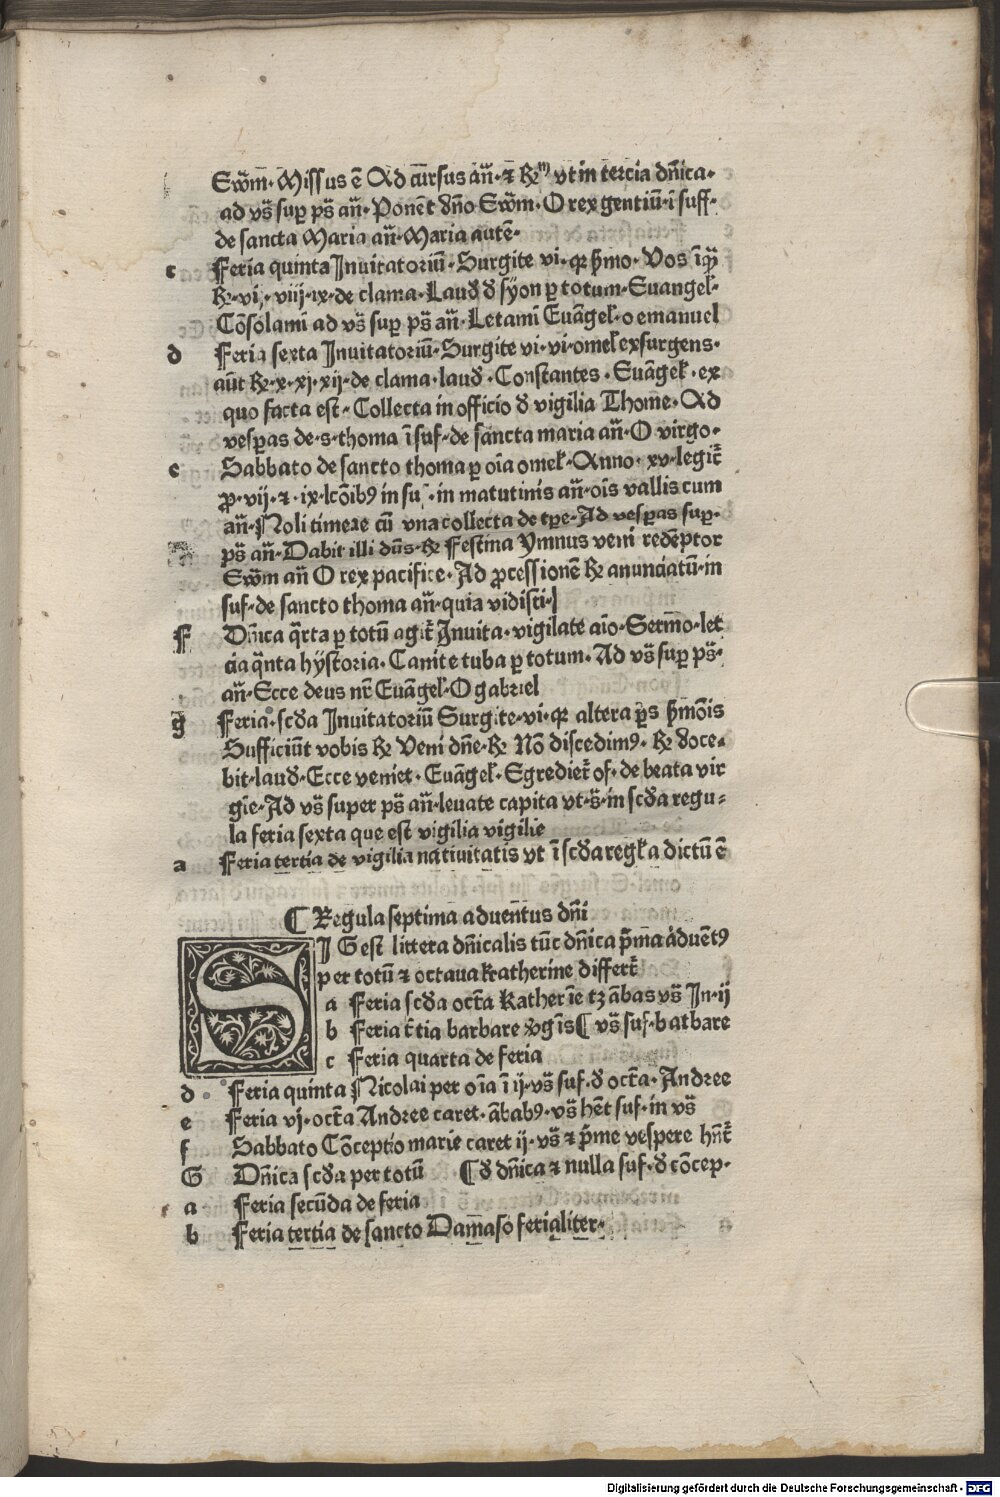 Sẘm· Missus ē Ad cursus añ· ⁊ ℟m̄ vt in tercia dñica·
ad vs̃ suꝑ ps̃ añ· Ponēt dño Sẘm· O rex gentiū· ī suff·
de sancta Maria añ· Maria autē·
c Feria quinta Inuitatoriū· Surgite vi· qꝛ ẜmo· Vos īqͣ̃
℟· vij· viij· ix· de clama· Laud̛ d̛ syon ꝑ totum· Euangel·
Cōsolamī ad vs̃ suꝑ ps̃ añ· Letamī Euāgel· o emanuel
d Feria sexta Inuitatoriū· Surgite vi· vi· omel exsurgens·
aūt ℟· x· xj· xij· de clama· laud̛· Constantes· Euāgel· ex
quo facta est· Collecta in officio d̛ vigilia Thome· Ad
vesꝑas de· s· thoma ī suf· de sancta maria añ· O virgo·
e Sabbato de sancto thoma ꝑ oīa omel· Anno· xv· legit̃
ꝓ· vij· ⁊· ix· lcōibꝰ in suf· in matutinis añ· oīs vallis cum
añ· Noli timere cū vna collecta de tꝑe· Ad vesꝑas suꝑ·
ps̃ añ· Dabit illi dūs· ℟ Festina Ymnus veni redēptor
Sẘm añ O rex pacifice· Ad ꝓcessionē ℟ anunciatū· in
suf· de sancto thoma añ· quia vidisti·
F Dñica q̃rta ꝑ totū agit̃ Inuita· vigilate aīo· Sermo· let
cia q̃nta hystoria· Canite tuba ꝑ totum· Ad vs̃ suꝑ ps̃·
añ· Ecce deus nr̃ Euāgel· O gabriel
g Feria· scd̛a Inuitatoriū Surgite· vi· qꝛ altera ꝑs ẜmōis
Sufficiūt vobis ℟ Veni dñe· ℟ Nō discedimꝰ· ℟ doce-
bit· laud̛· Ecce veniet· Euāgel· Egrediet̃ of· de beata vir
gie· Ad vs̃ super ps̃ añ· leuate capita vt· s̃· in scd̛a regu-
la feria sexta que est vigilia vigilie
a Feria tertia de vigilia natiuitatis vt ī scd̛a regl̛a dictū ē
¶ Regula septima aduentus dñi
SI G est littera dñicalis tūc dñica p̃ma aduētꝰ
per totū ⁊ octaua katherine differt̃
a Feria scd̛a oct̃a Katherīe tz ābas vs̃ In· ij
b Feria t̃tia barbare v̛gīs ¶ vs̃ suf· batbare
c Feria quarta de feria
d Feria quinta Nicolai per oīa ī ij· vs̃ suf· d̛ oct̃a· Andree
e Feria vj· oct̃a Andree caret· ābabꝰ· vs̃ hēt suf· in vs̃
f Sabbato Cōceptio marie caret ij· vs̃ ⁊ p̃me vespere hñt̃
G Dñica scd̛a per totū ¶ d̛ dñica ⁊ nulla suf· d̛ cōcep·
a Feria secūda de feria
b Feria tertia de sancto Damaso ferialiter·
Digitalisierung gefördert durch die Deutsche Forschungsgemeinschaft - DFG